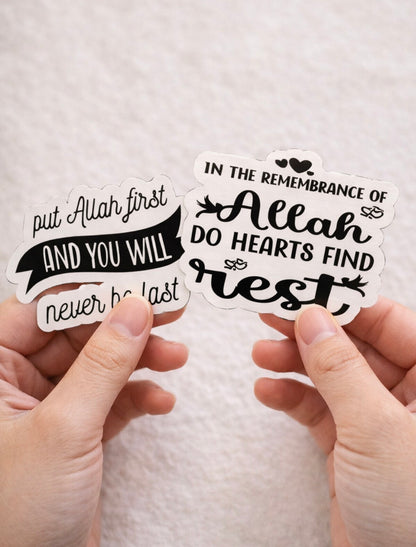 put Allah first
AND YOU WILL
never be last
IN THE REMEMBRANCE OF
Allah
DO HEARTS FIND
rest